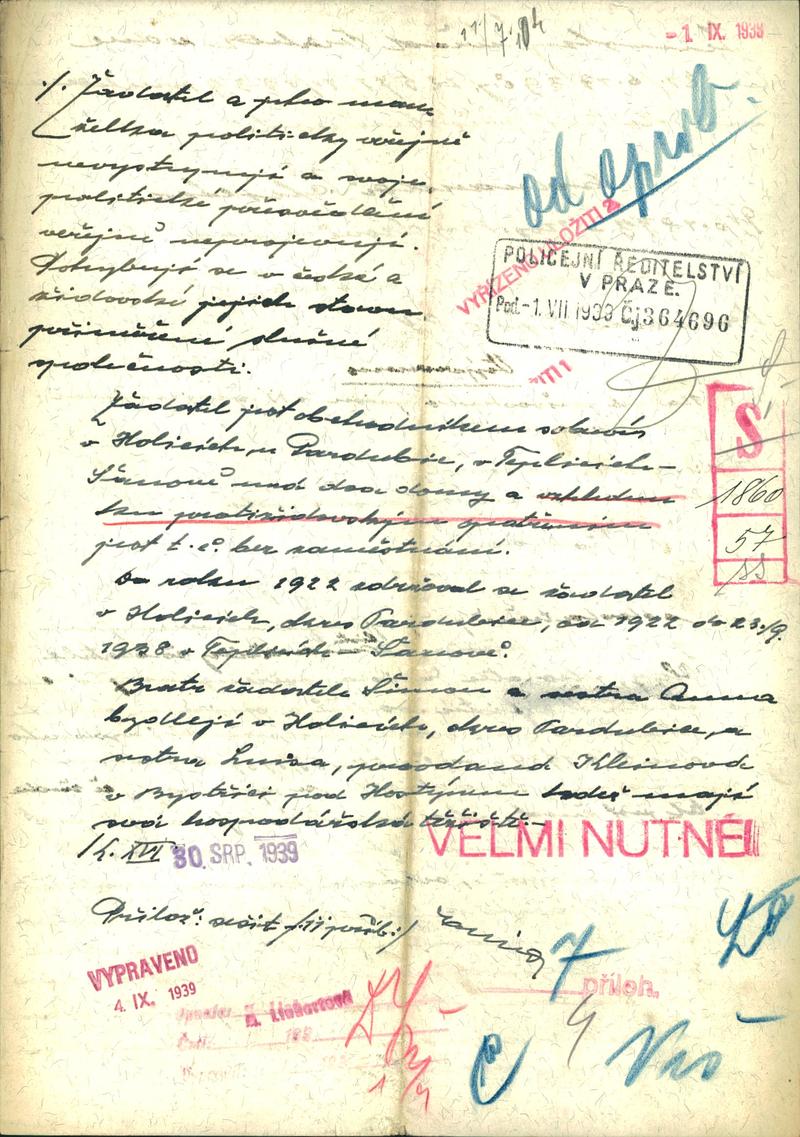 11/7.04
- 1. IX. 1939
./. Žadatel a jeho man-
želka politicky veřejně
nevystupují a svoje
politické přesvědčení
veřejně neprojevují.
Pohybují se v české a
židovské jejich stavu
přiměřené slušné
společnosti.
od oprob.
VYŘÍZENO ULOŽITI 2
POLICEJNÍ ŘEDITELSTVÍ
V PRAZE.
Pod. - 1. VII 1939 Čj 364696
Žadatel jest obchodníkem
v Holicích u Pardubic, v Teplicích-
Šanově má dva domy a vzhledem
ku protižidovským opatřením
jest t. č. bez zaměstnání.
S
1860
57
Do roku 1922 zdržoval se žadatel
v Holicích, okres Pardubice, od 1922 do 23./9.
1938 v Teplicích - Šanově.
Bratr žadatele Šimon a sestra Anna
bydlejí v Holicích, okres Pardubice, a
sestra Luisa, provdaná Kleinová
v Bystřici pod Hostýnem též mají
svá hospodářská těžiště.
VELMI NUTNÉ!
XVI 30. SRP. 1939
Přílož: sešit /:11 příl.:/
7
příloh.
VYPRAVENO
4. IX. 1939
A. Linhartová